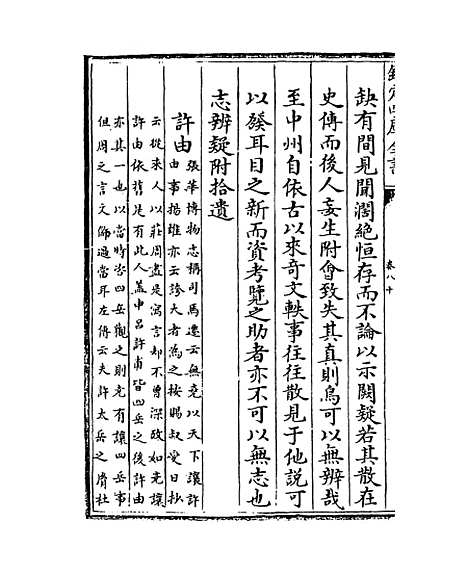 欽定四庫全書
卷八十
缺有間見聞濶絶恒存而不論以示闕疑若其散在
史傳而後人妄生附會致失其真則烏可以無辨哉
至中州自依古以來奇文軼事往往散見于他說可
以發耳目之新而資考覽之助者亦不可以無志也
志辨疑附拾遺
許由
張華博物志稱司馬遷云無堯以天下讓許
由事揚雄亦云誇大者為之按賜叔愛日抄
云從來人以莊周盡是寓言却不曾深攷如堯讓
許由依舊是有此人蓋申呂許甫皆四岳之後許由
亦其一也以當時咨四岳觀之則堯有讓四岳事
但周之言文飾過當耳左傳云夫許太岳之𦙍杜